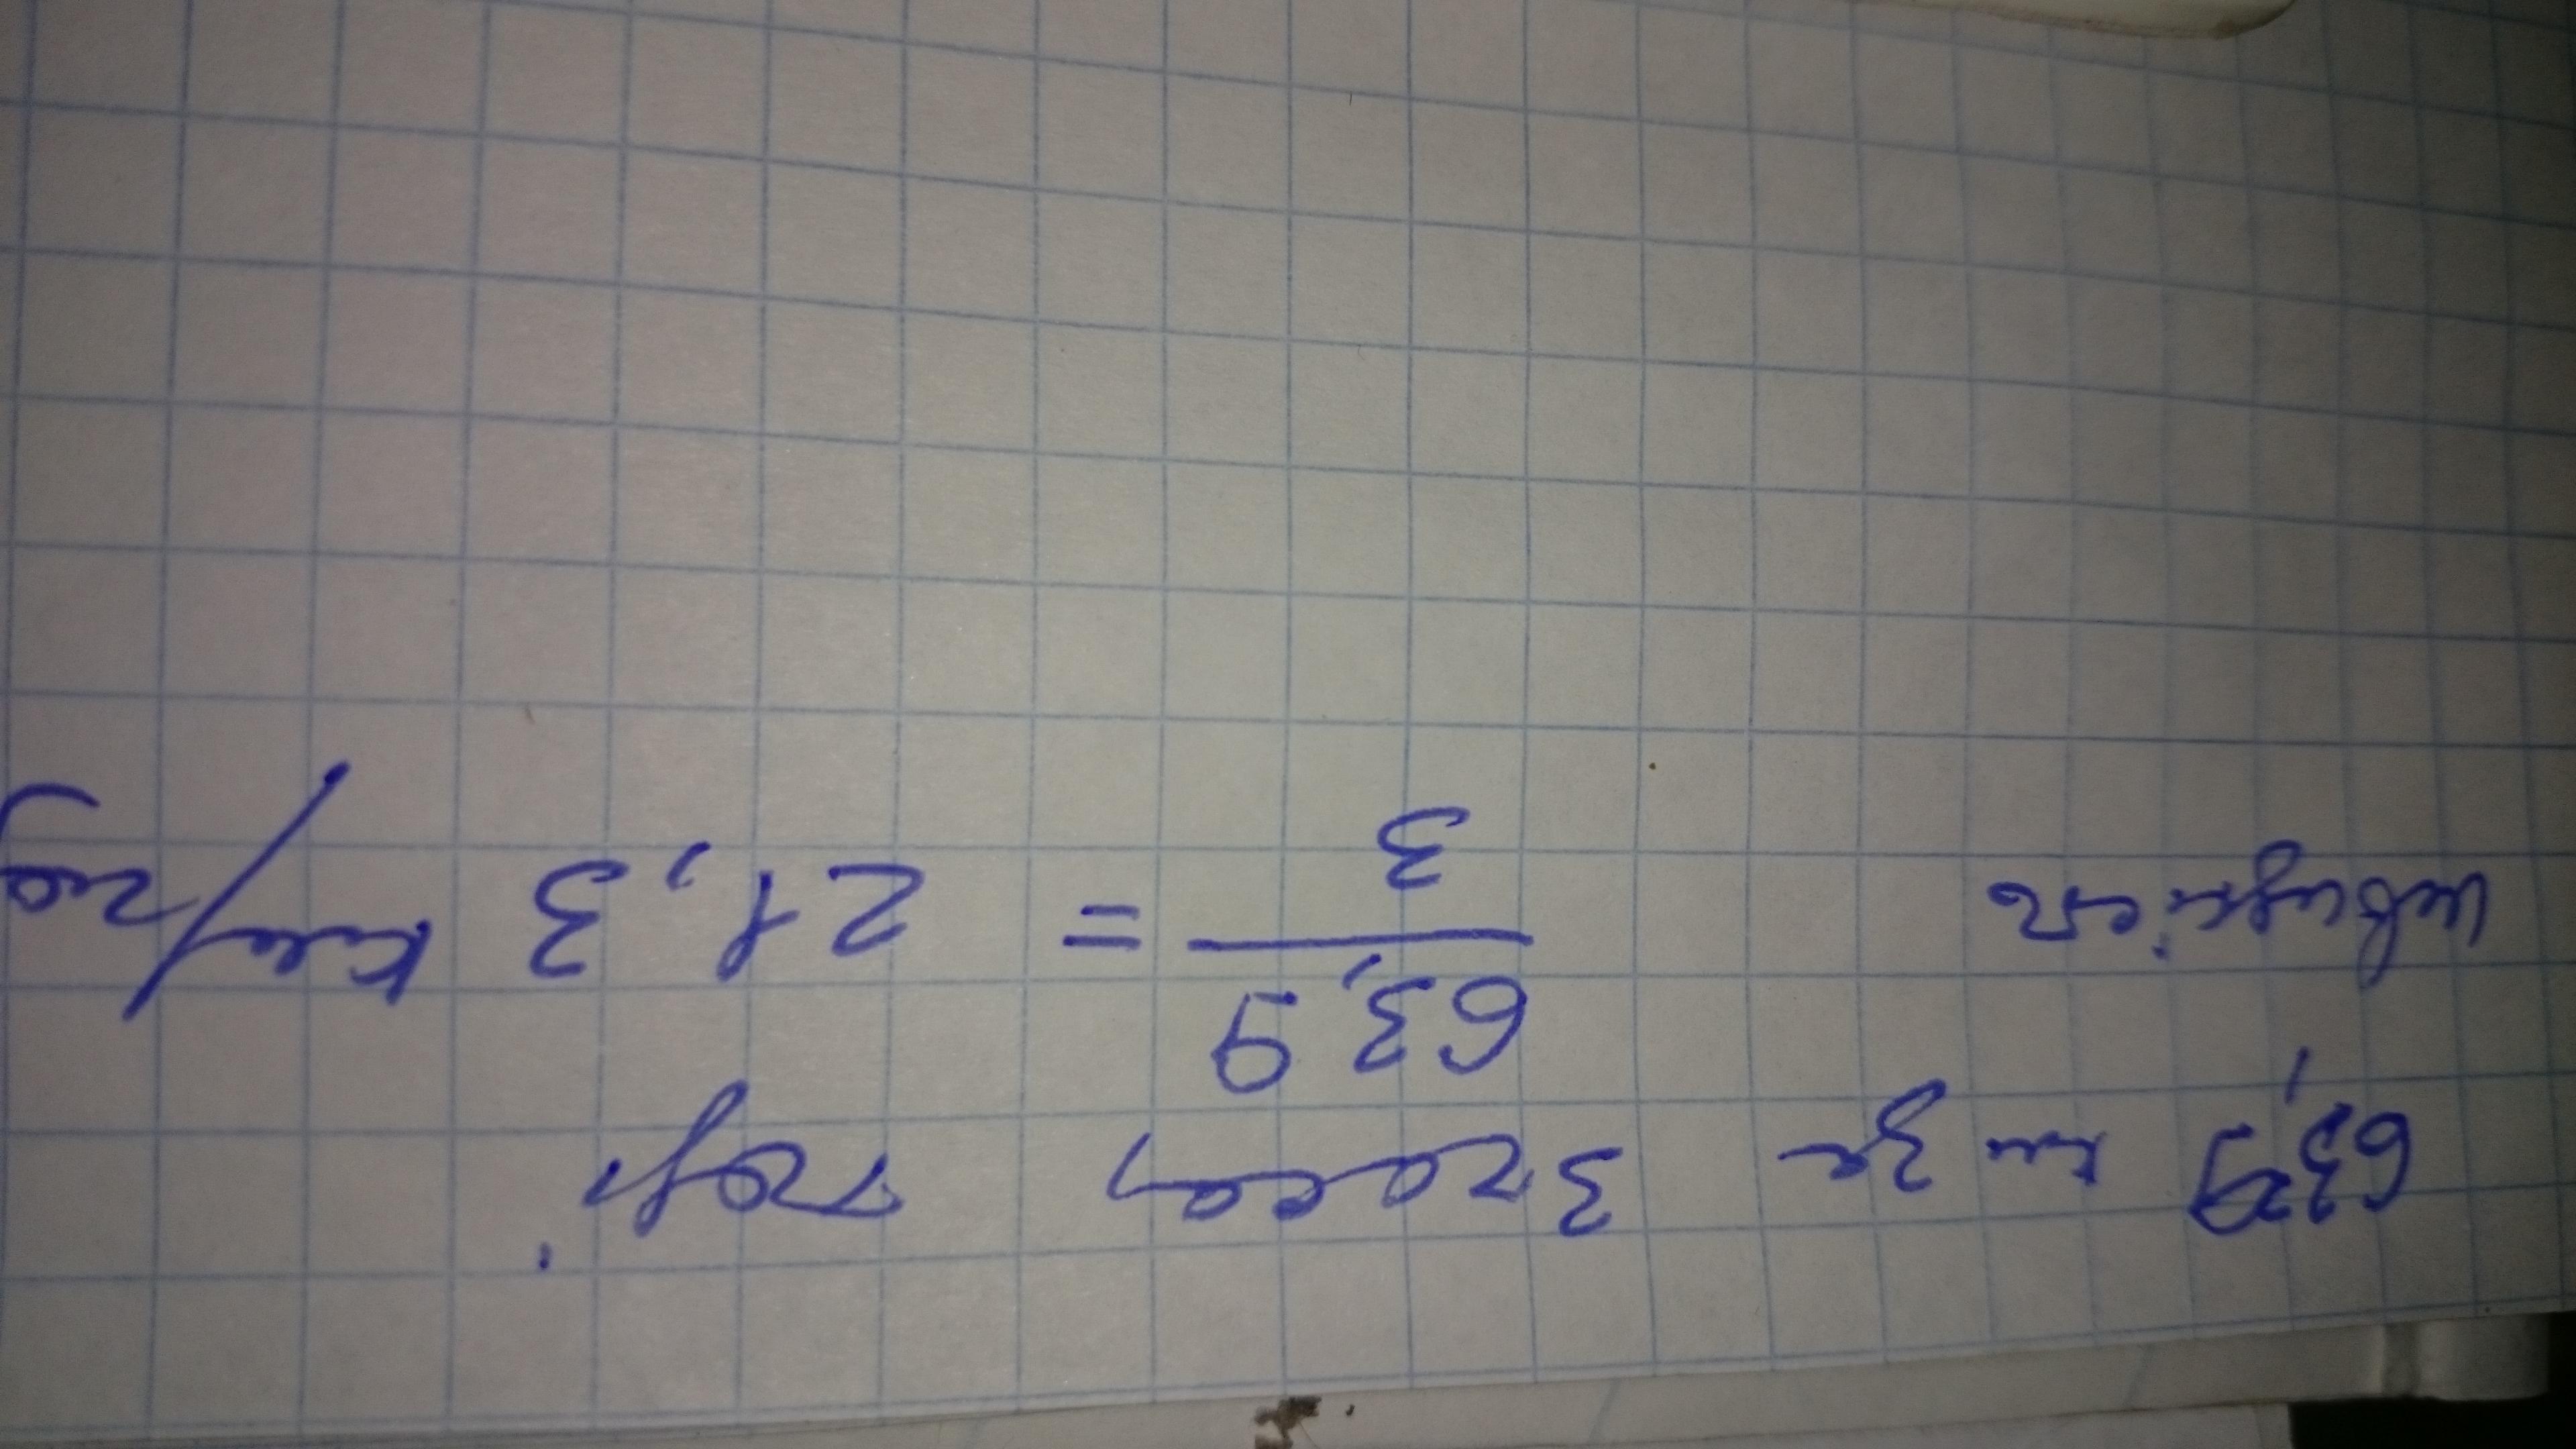 63,9 км за 3 часа, тоді
швидкість 63,9/3 = 21,3 км/год